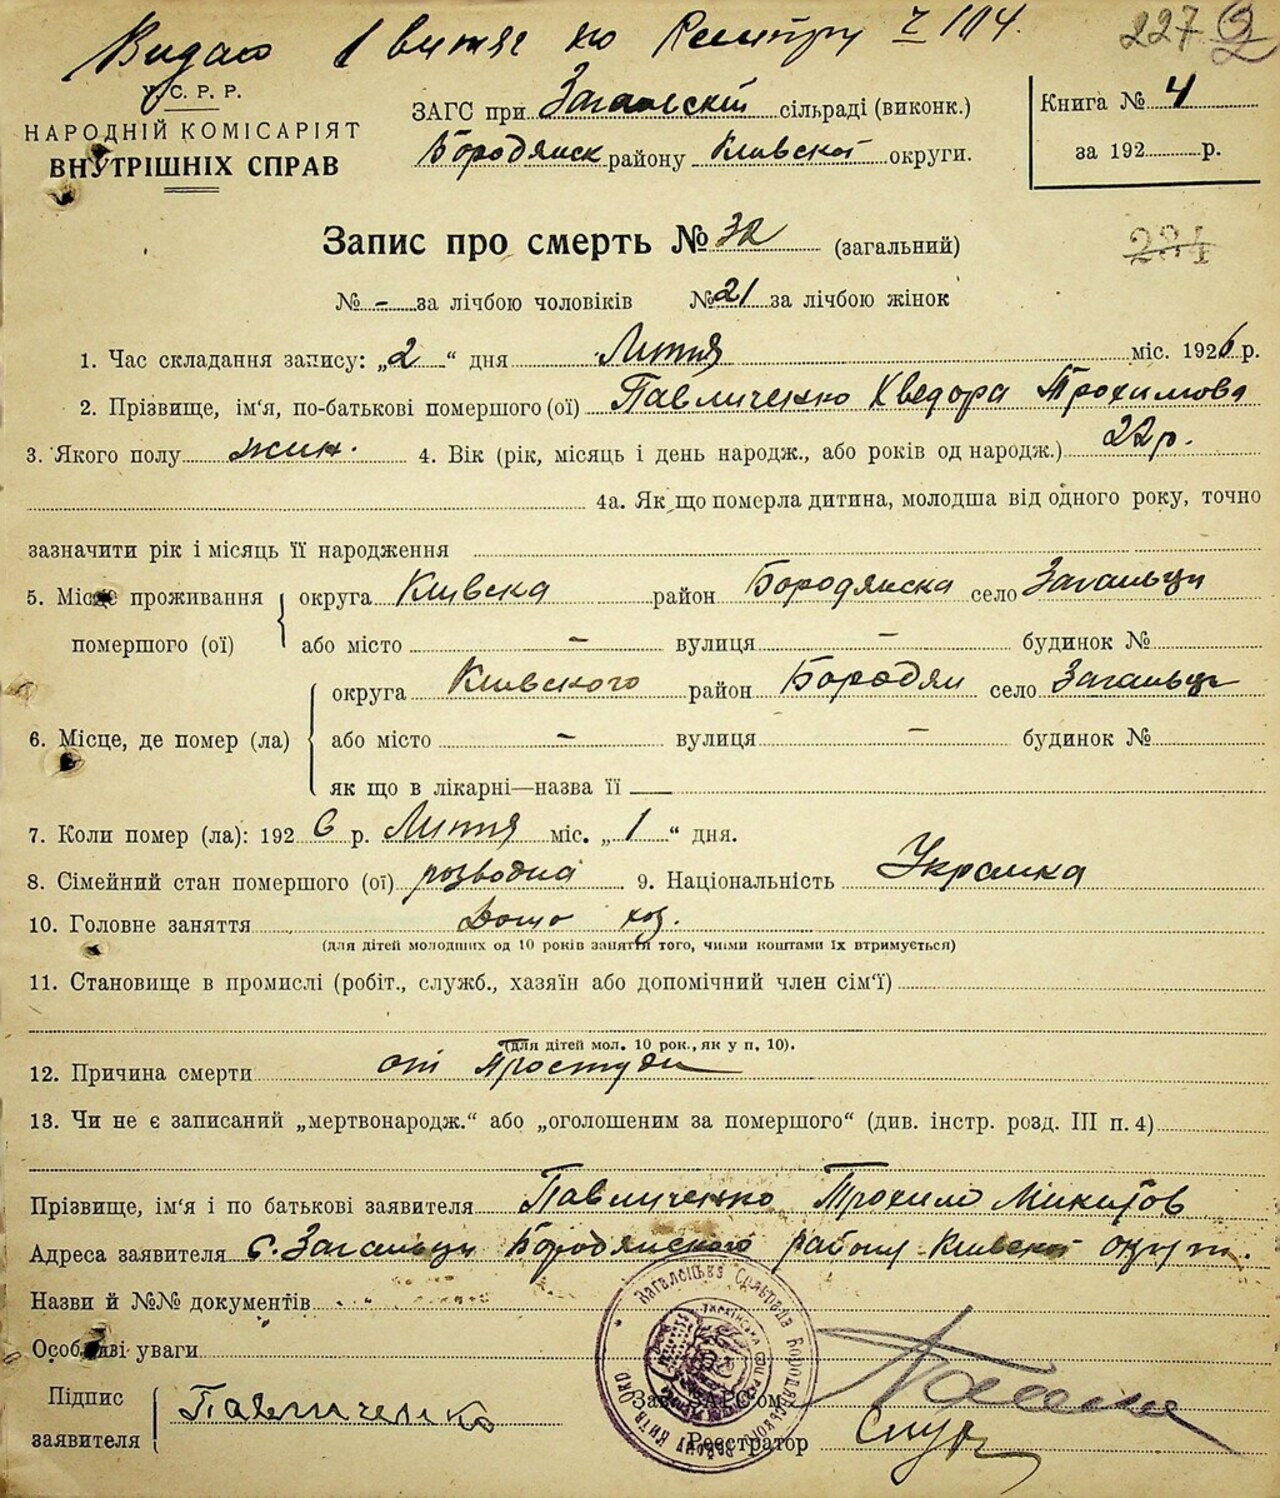 Видано 1 витяг по Реєстру № 104.
227
У. С. Р. Р.
НАРОДНІЙ КОМІСАРІЯТ
ВНУТРІШНІХ СПРАВ
ЗАГС при Загальскій сільраді (виконк.)
Бородянск району Київської округи.
Книга № 4
за 192 р.
Запис про смерть № 32 (загальний)
234
№ - за лічбою чоловіків № 21 за лічбою жінок
1. Час складання запису: „2“ дня Липня міс. 1926 р.
2. Прізвище, ім'я, по-батькові помершого (ої) Павличенко Хведора Трохимова
3. Якого полу жин. 4. Вік (рік, місяць і день народж., або років од народж.) 22 р.
4а. Як що померла дитина, молодша від одного року, точно
зазначити рік і місяць її народження
5. Місце проживання помершого (ої) округа Київска район Бородянска село Загальци
або місто - вулиця - будинок №
6. Місце, де помер (ла) округа Киівского район Бородян село Загальці
або місто - вулиця - будинок №
як що в лікарні—назва її —
7. Коли помер (ла): 1926 р. Липня міс. „1“ дня.
8. Сімейний стан помершого (ої) розводна 9. Національність Українка
10. Головне заняття Домо хоз.
(для дітей молодших од 10 років заняття того, чиїми коштами їх втримується)
11. Становище в промислі (робіт., служб., хазяїн або допомічний член сім'ї)
(для дітей мол. 10 рок., як у п. 10).
12. Причина смерти от простуди
13. Чи не є записаний „мертвонародж.“ або „оголошеним за помершого“ (див. інстр. розд. III п. 4)
Прізвище, ім'я і по батькові заявителя Павличенко Трохим Микитов
Адреса заявителя с. Загальци Бородянского району Київскої округи.
Назви й №№ документів
Особливі уваги
Підпис заявителя Павличенко
Зав. ЗАГС'ом
Реєстратор